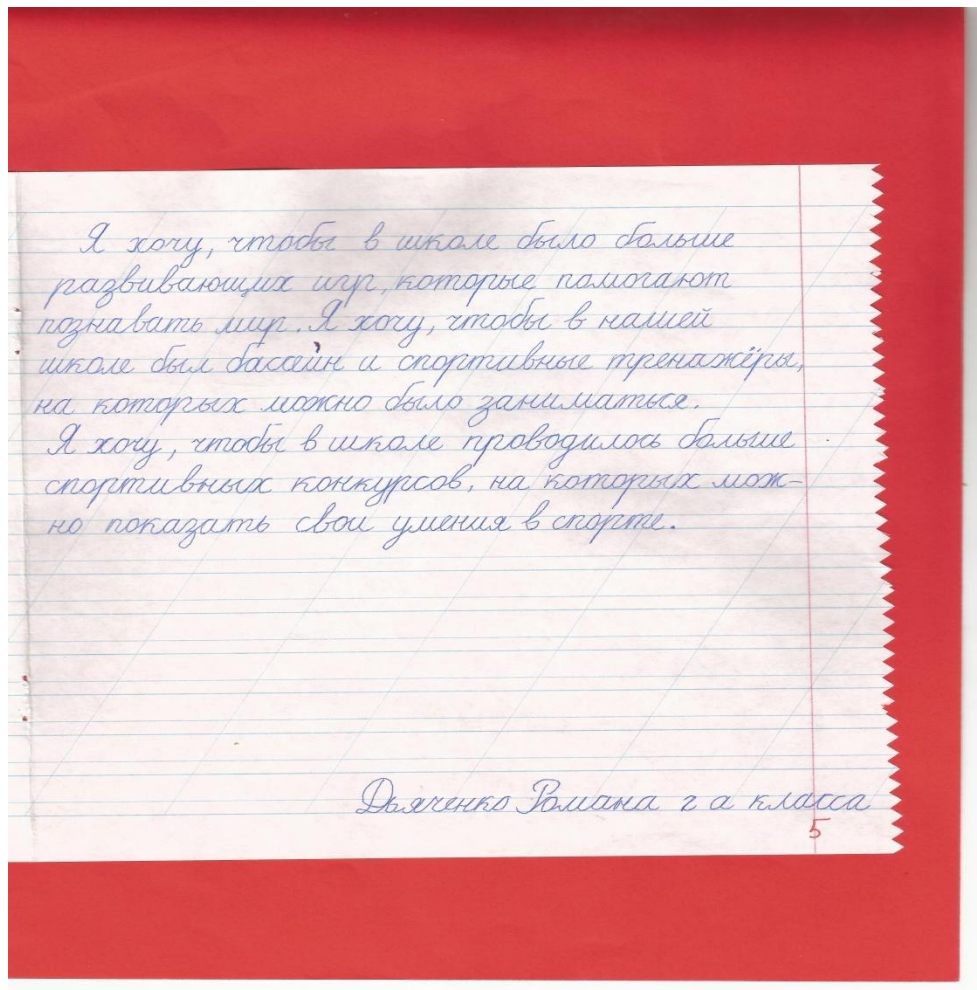 Я хочу, чтобы в школе было больше
развивающих игр, которые помогают
познавать мир. Я хочу, чтобы в нашей
школе был бассейн и спортивные тренажёры,
на которых можно было заниматься.
Я хочу, чтобы в школе проводилось больше
спортивных конкурсов, на которых мож-
но показать свои умения в спорте.
Дьяченко Романа 2 а класса
5